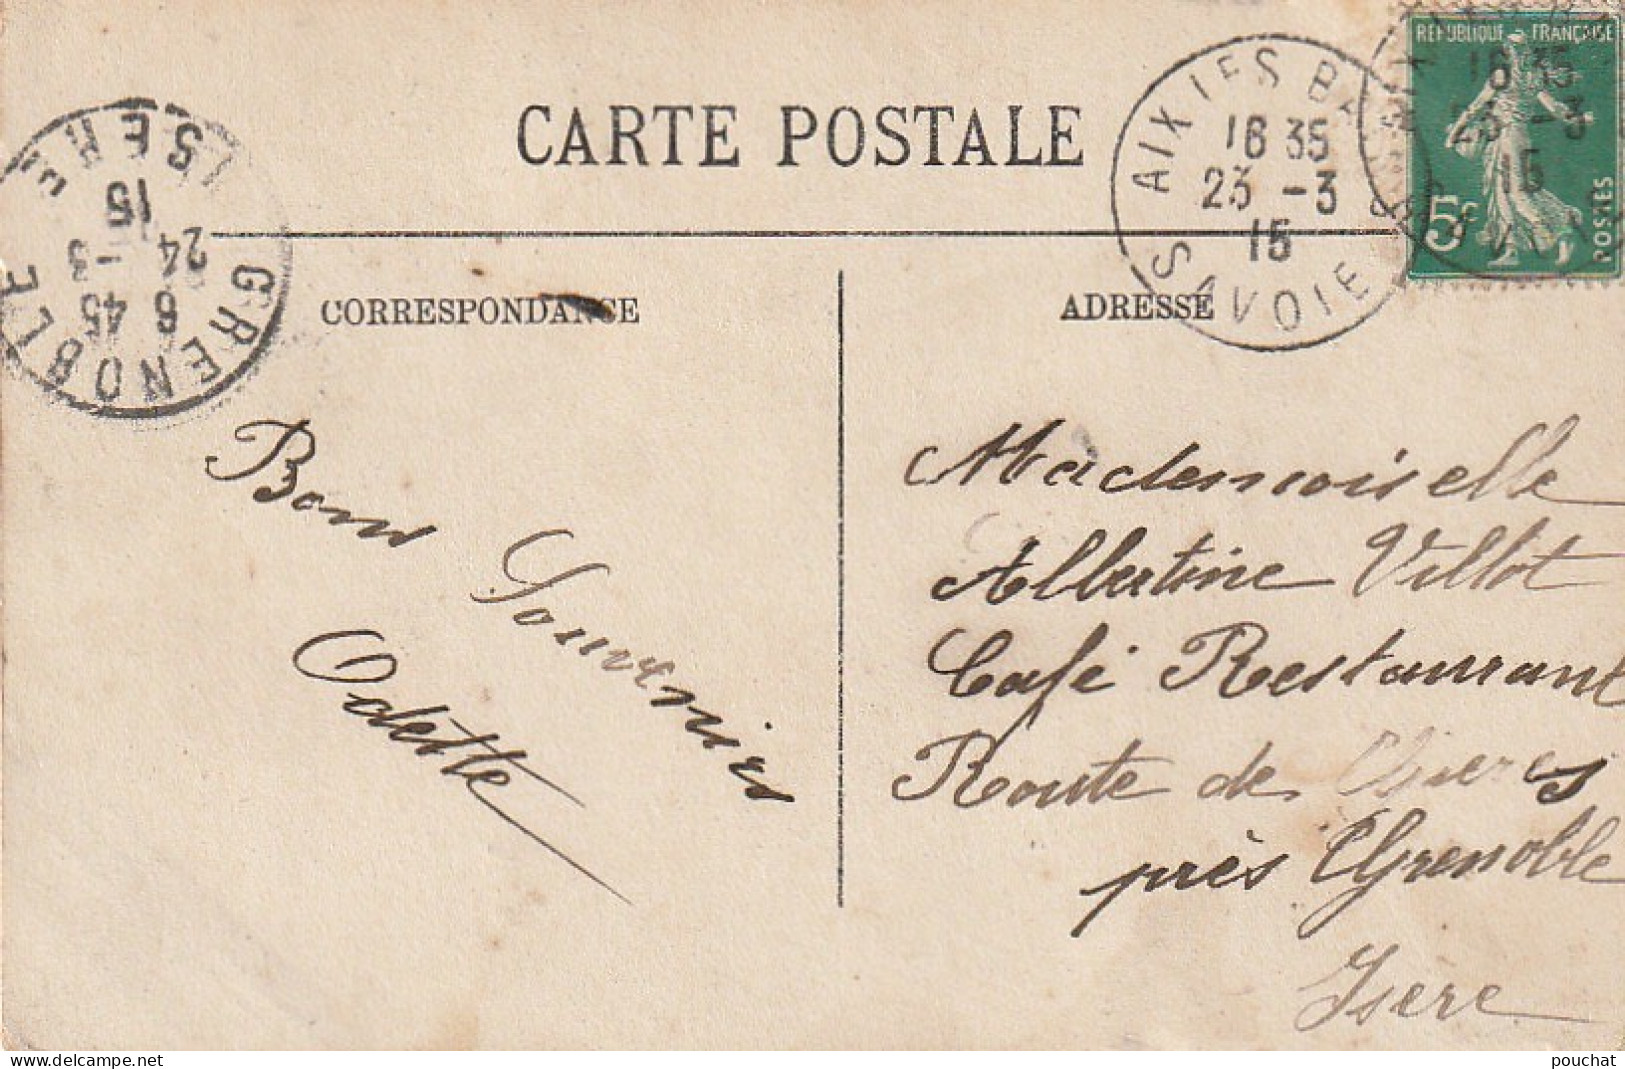 CARTE POSTALE
CORRESPONDANCE
ADRESSE
AIX LES BA
SAVOIE
16 35
23 -3
15
RÉPUBLIQUE FRANÇAISE
16 35
23 -3
15
5c
POSTES
GRENOBLE
ISERE
6 45
24 - 3
15
Bons Souvenirs
Odette
Mademoiselle
Albertine Villot
Café Restaurant
Route de
près Grenoble
Isere
delcampe.net
pouchat